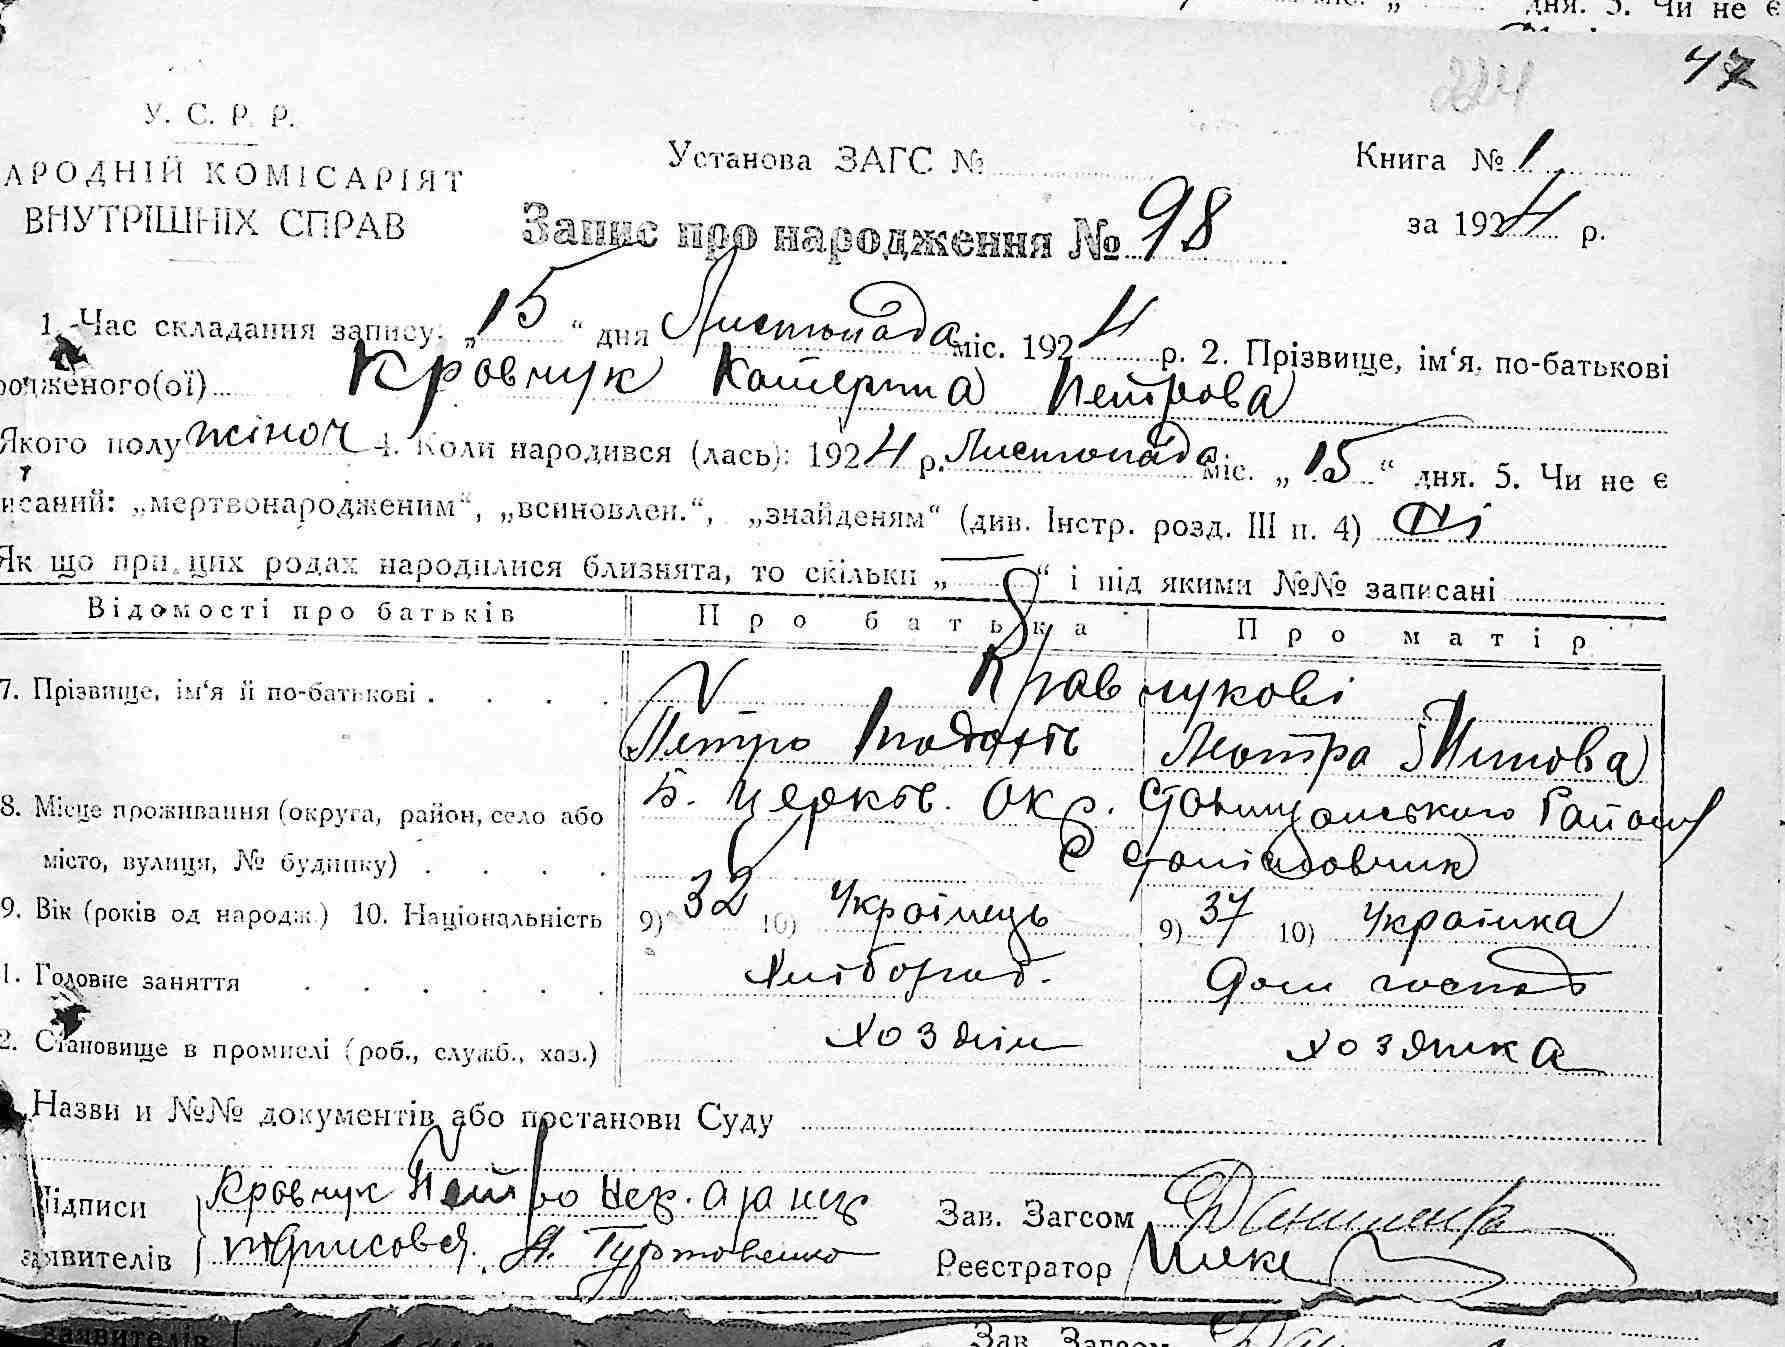 дня. 5. Чи не є
224
47
У. С. Р. Р.
АРОДНІЙ КОМІСАРІЯТ
ВНУТРІШНІХ СПРАВ
Установа ЗАГС №
Книга № 1
за 1924 р.
Запис про народження № 98
1. Час складання запису: „15“ дня Листопада міс. 1924 р. 2. Прізвище, ім‘я, по-батькові
родженого(ої) Кровчук Катерина Петрова
Якого полу жіноч 4. Коли народився (лась): 1924 р. Листопада міс. „15“ дня. 5. Чи не є
исаний: „мертвонародженим“, „всиновлен.“, „знайденям“ (див. Інстр. розд. III п. 4) Ні
Як що при цих родах народилися близнята, то скільки „—“ і під якими №№ записані
Відомості про батьків Про батька Про матір
7. Прізвище, ім‘я й по-батькові . . . . Кравчукові
Петро
8. Місце проживання (округа, район, село або Б. Церков. Окр. Району
місто, вулиця, № будинку) . . . . С
9. Вік (років од народж.) 10. Національність 9) 32 10) Українець 9) 37 10) Українка
1. Головне заняття . . . . . . Хлібороб. Дом господ
2. Становище в промислі (роб., служб., хаз.) хозяїн хозяйка
Назви и №№ документів або постанови Суду
Підписи Кровчук Петро
заявителів
Зав. Загсом
Реєстратор
заявителів
Зав. Загсом